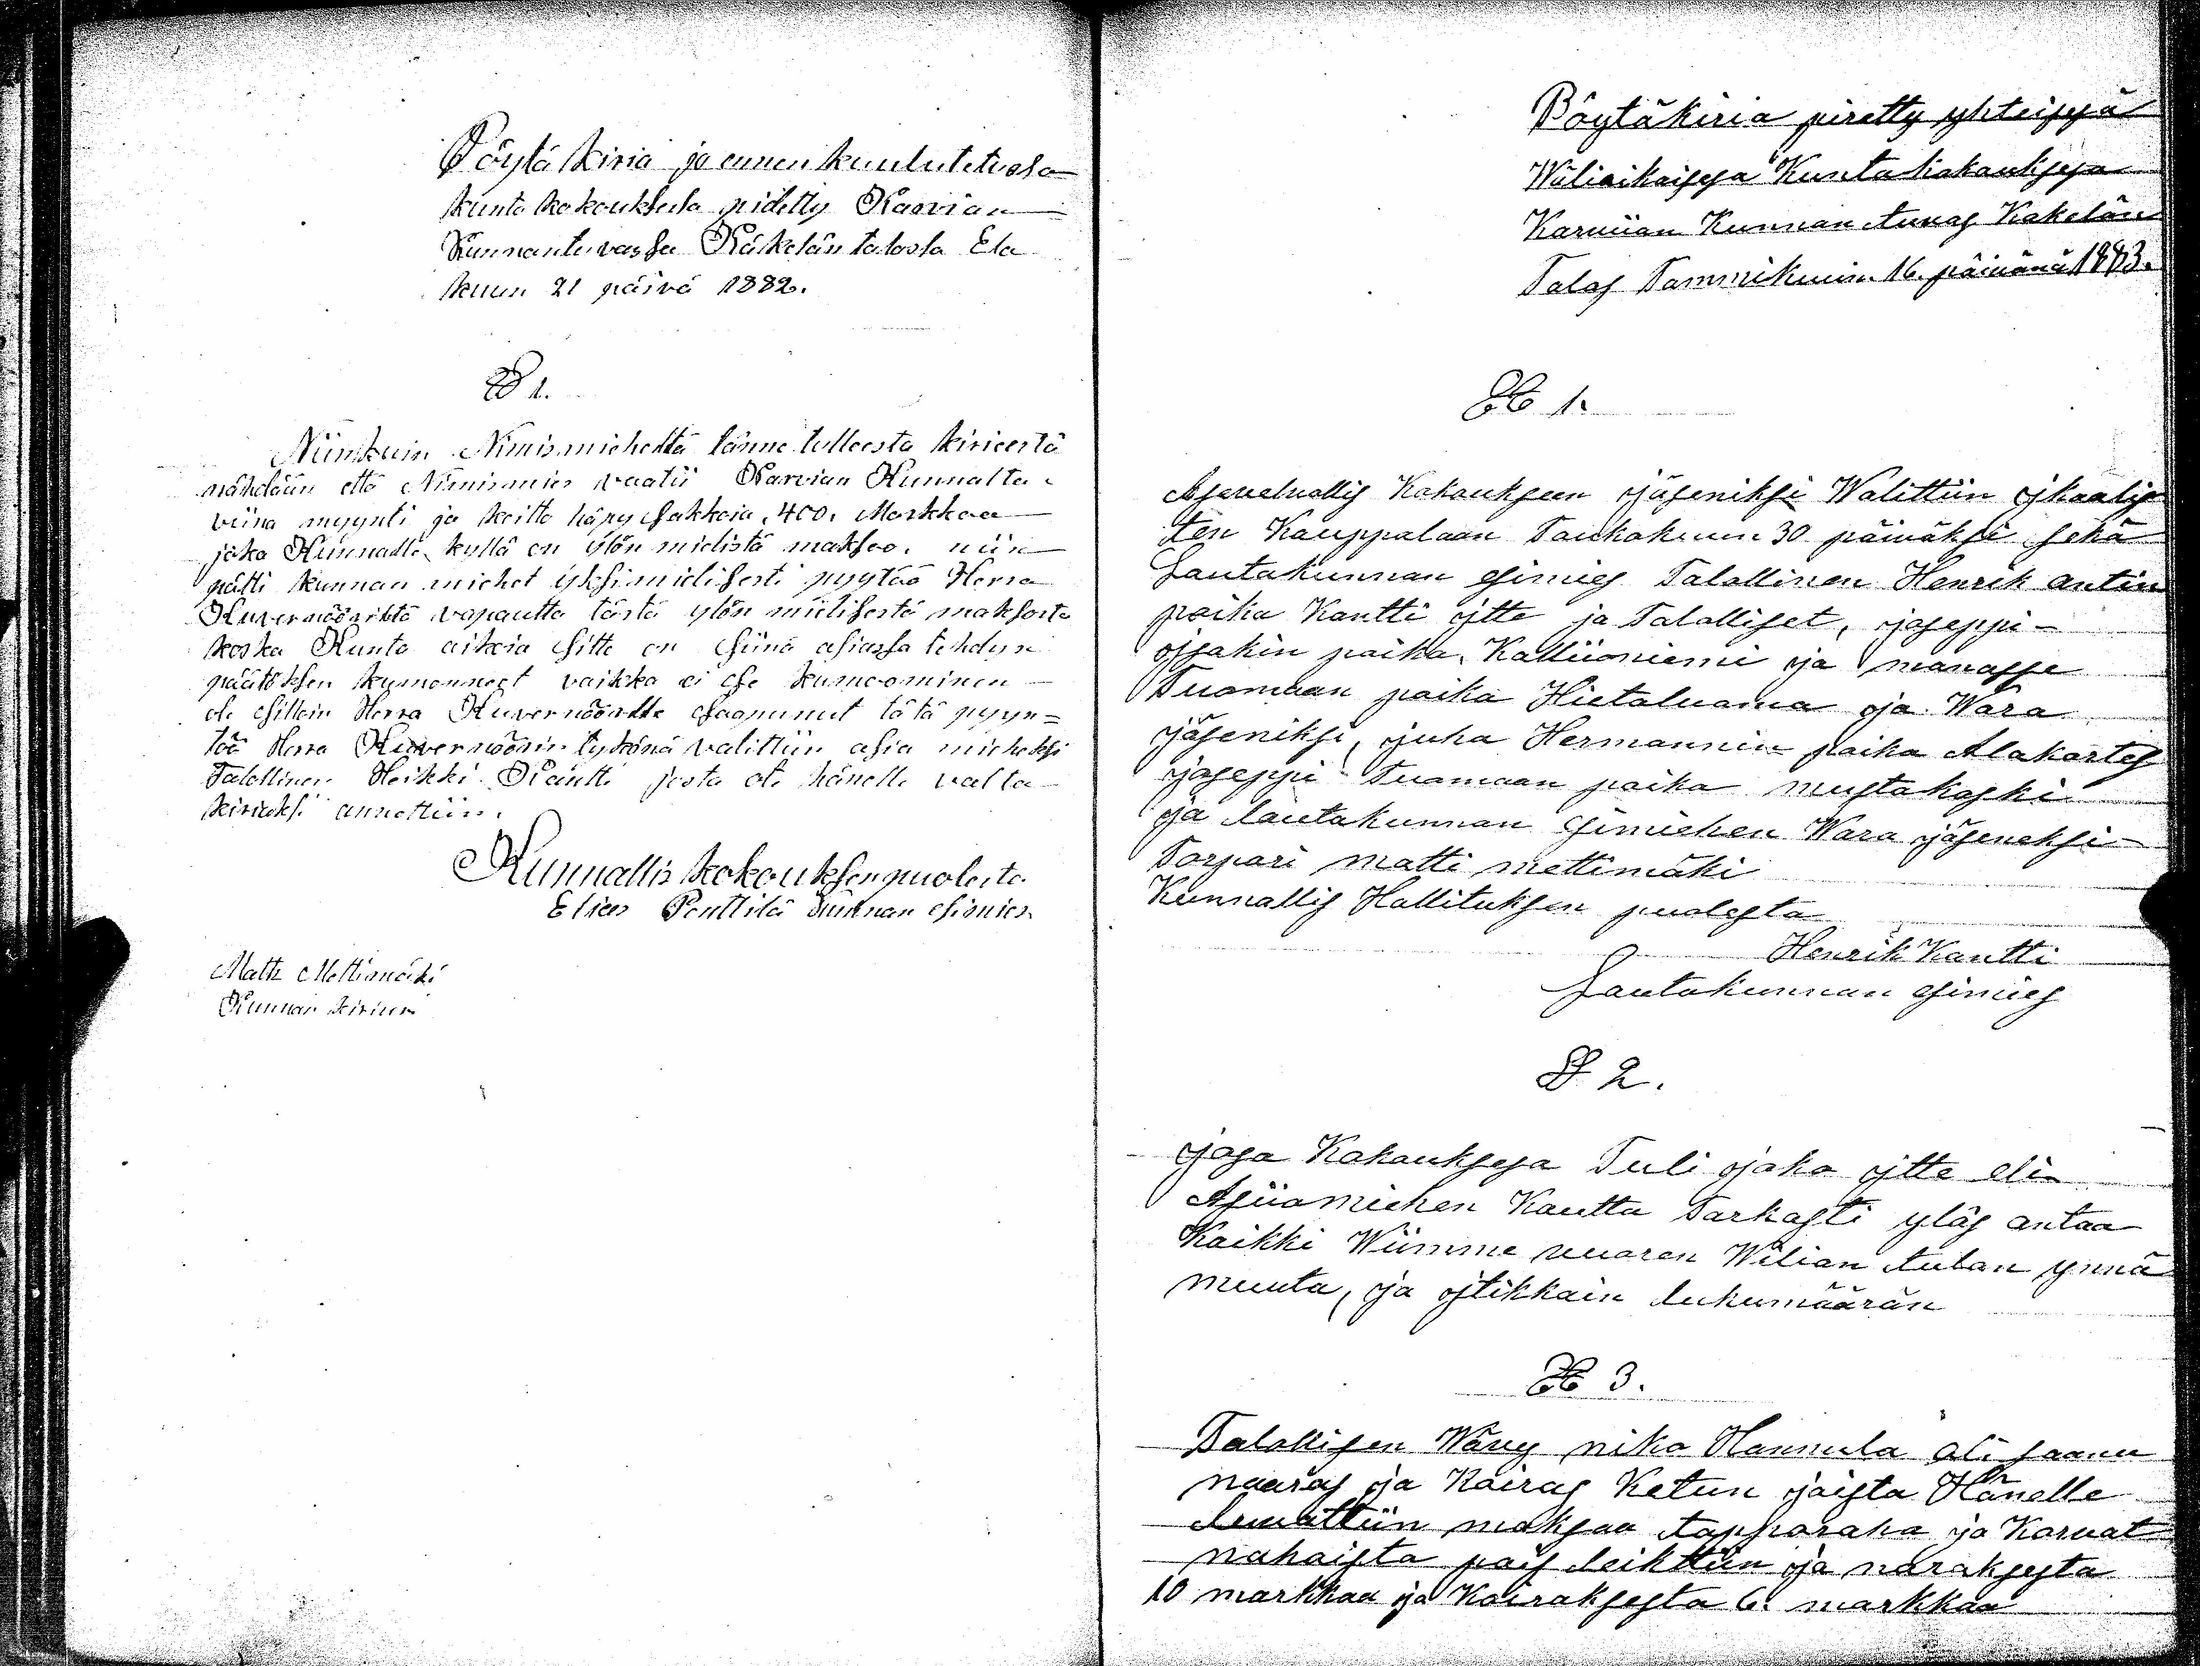 Pöytäkiria ja ennen kuulutetusa
kunta kokouksesa pidetty Karvian
Kunnantuvassa Käkelän talosla Ela
kuun 21 päivä 1882.
§ 1.
Niinkuin Nimismieheltä tänne tulleesta kirieestä
nähdään että Nimismies vaatii Karvian Kunnalta
viina myynti ja keitto häpy sakkoia 400. Markkaa
joka Kunnalle kyllä on ylön mielistä maksoo. niin
pätti kunnan miehet yksimielisesti pyytää Herra
Kuvernööriltä vapautta tästä ylön mielisestä maksosta
koska Kunta aikoia sitte on siinä asiassa tehdyn
päätöksen kumonneet vaikka ei se kumoominen
ole silloin Herra Kuvernöörille saapunut tätä pyyn=
töö Herra Kuvernöörin tykönä valittiin asia mieheksi
Talollinen Heikki Kantti josta ole hänelle valta
kirieksi annettiin.
Kunnallis kokouksen puolesta
Elias Penttilä kunnan esimies
Matts Mettimäki
Kunnan kiriuri
Pöytäkiria piretty yhteisesä
Waliaikaisesa Kunta kokouksesa
Karviian Kunnan tuvas Kakelän
Talas Tammikuun 16. päivänä 1883.
§ 1.
Asevelvollis Kokouksen jäseniksi Walittiin ikaalis
ten Kauppalaan Toukokuun 30 päiväksi sekä
Lautakunnan esimies Talollinen Henrik antin
poika Kantti itte ja Talolliset, joseppi-
isakin poika, Kallioniemi ja manasse
Tuomaan poika Hietaluoma ja Wara
jäseniksi, juha Hermannin poika Alakortes
joseppi Tuomaan poika mustakoski
ja lautakunnan esimiehen Wara jäseneksi-
Torpari matti mettimäki
Kunnallis Hallituksen puolesta
Henrik Kantti
Lautakunnan esimies
§ 2.
josa Kokouksesa Tuli joka itte eli
Asiiamiehen Kautta Tarkasti ylös antaa
Kaikki Wiimme vuoren Wilian tulon ynnä
muuta, ja itikkain lukumäärän
§ 3.
Talollisen Wävy nika Hannula oli saanu
naaras ja Koiras Ketun joista Hänelle
luvattiin maksaa tapporaha ja Korvat
nahaista pois leikttiin ja naraksesta
10 markkaa ja Koiraksesta 6. markkaa